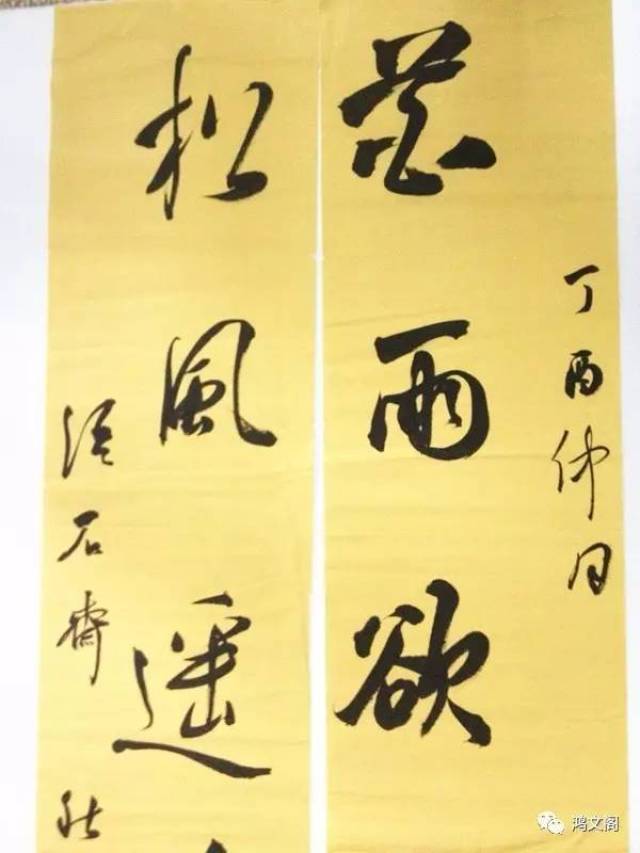 丁酉仲月
花雨欲
松風遥
石齋
鸿文阁